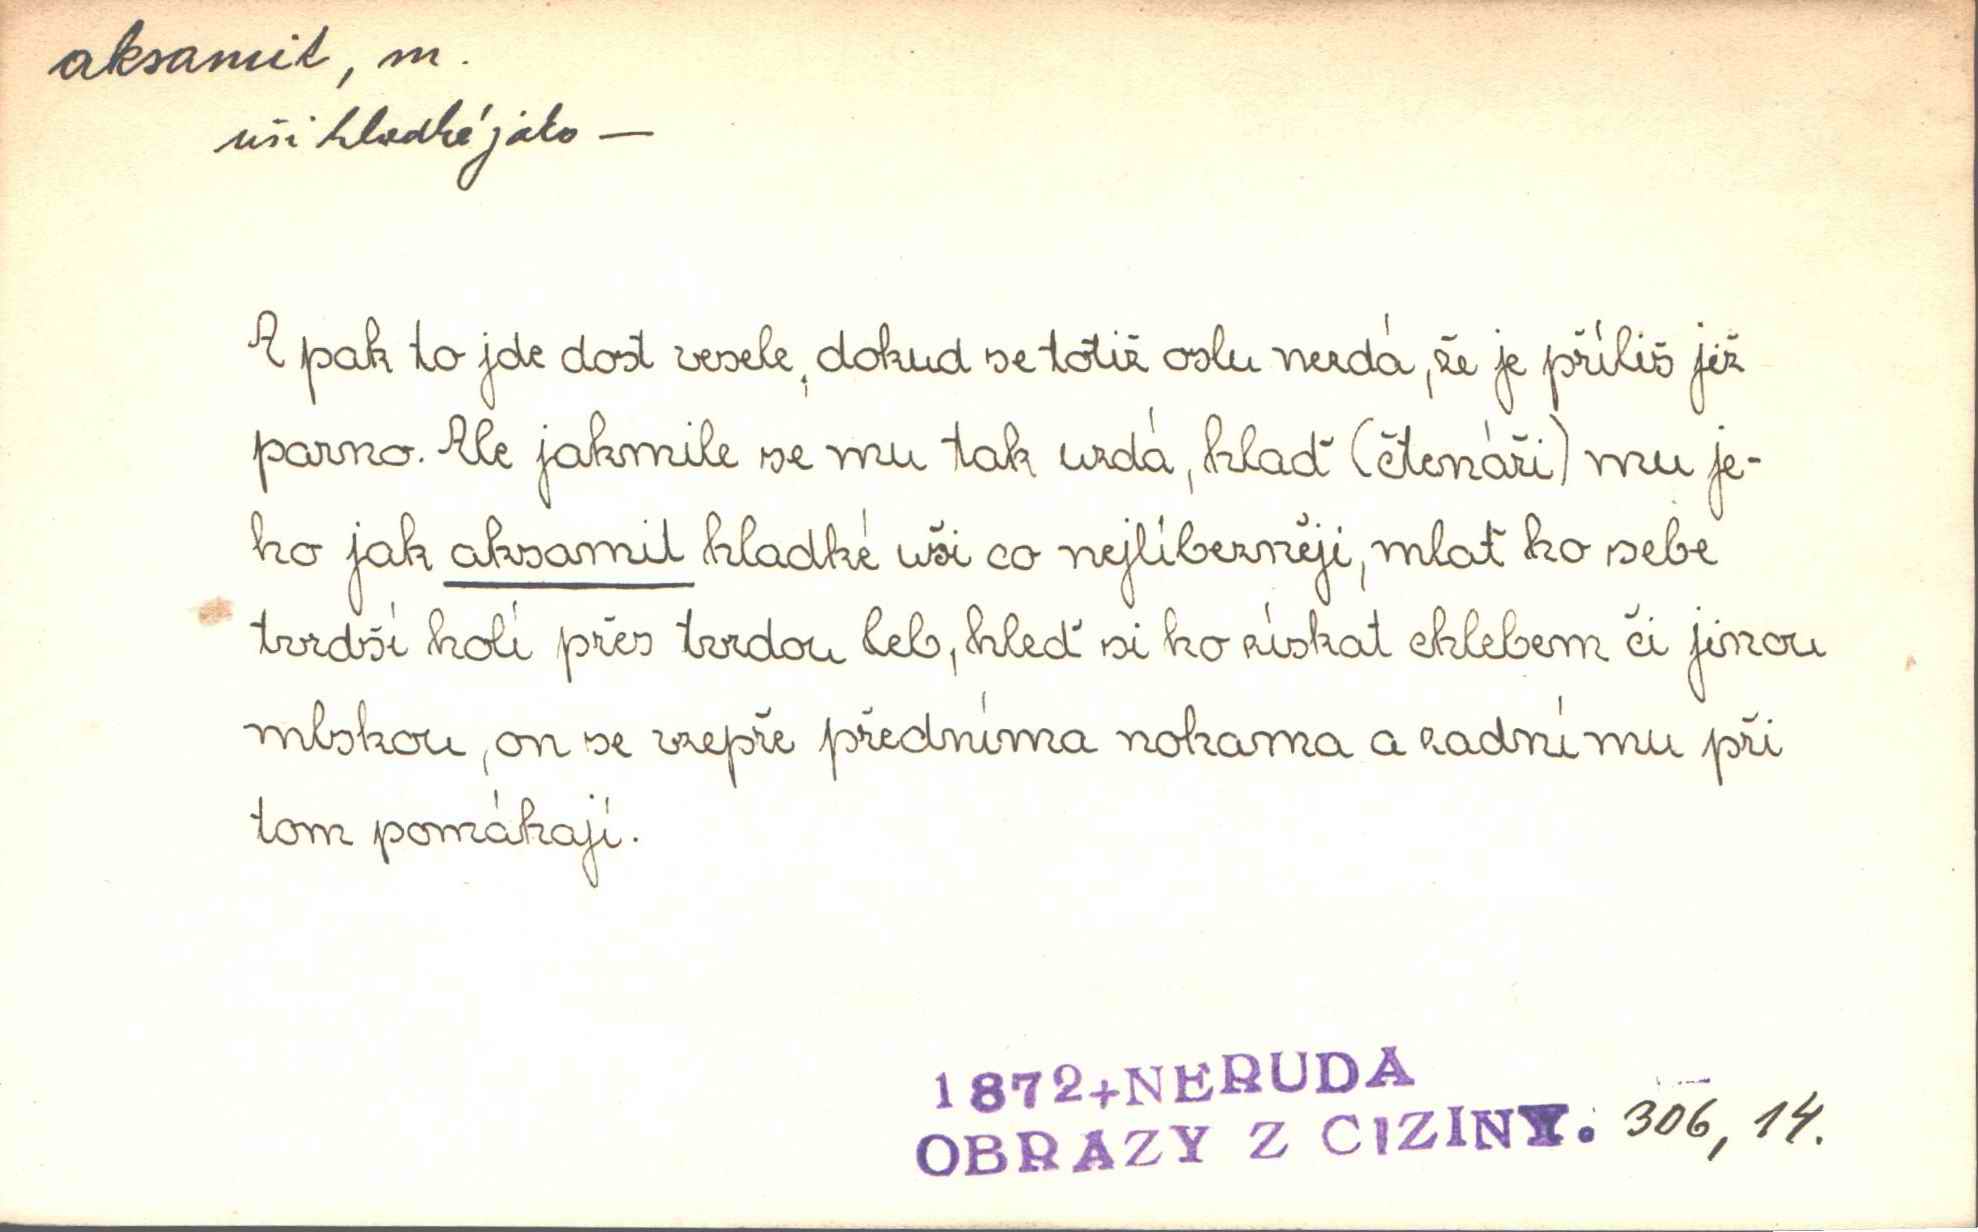 aksamit, m.
uši hladké jako —
A pak to jde dost vesele, dokud se totiž oslu nezdá, že je příliš již
parno. Ale jakmile se mu tak uzdá, hlaď (čtenáři) mu je-
ho jak aksamit hladké uši co nejlíbezněji, mlať ho sebe
tvrdší holí přes tvrdou leb, hleď si ho získat chlebem či jinou
mlskou, on se vzepře předníma nohama a zadní mu při
tom pomáhají.
1872+NERUDA
OBRAZY Z CIZINY. 306, 14.